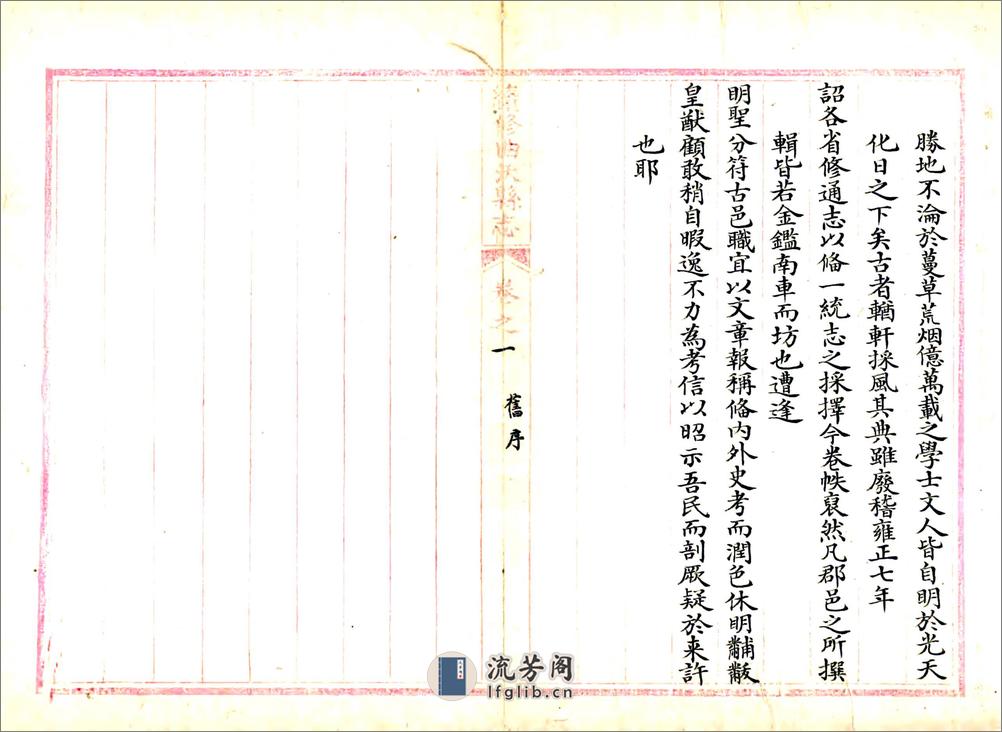 勝地不淪於蔓草荒烟億萬載之學士文人皆自明於光天
化日之下矣古者輶軒採風其典雖廢稽雍正七年
詔各省修通志以備一統志之採擇今卷帙裒然凡郡邑之所撰
輯皆若金鑑南車而坊也遭逢
明聖分符古邑職宜以文章報稱備內外史考而潤色休明黼黻
皇猷顧敢稍自暇逸不力為考信以昭示吾民而剖厥疑於来許
也耶
續修曲沃縣志
卷之一
舊序
流芳阁
lfglib.cn